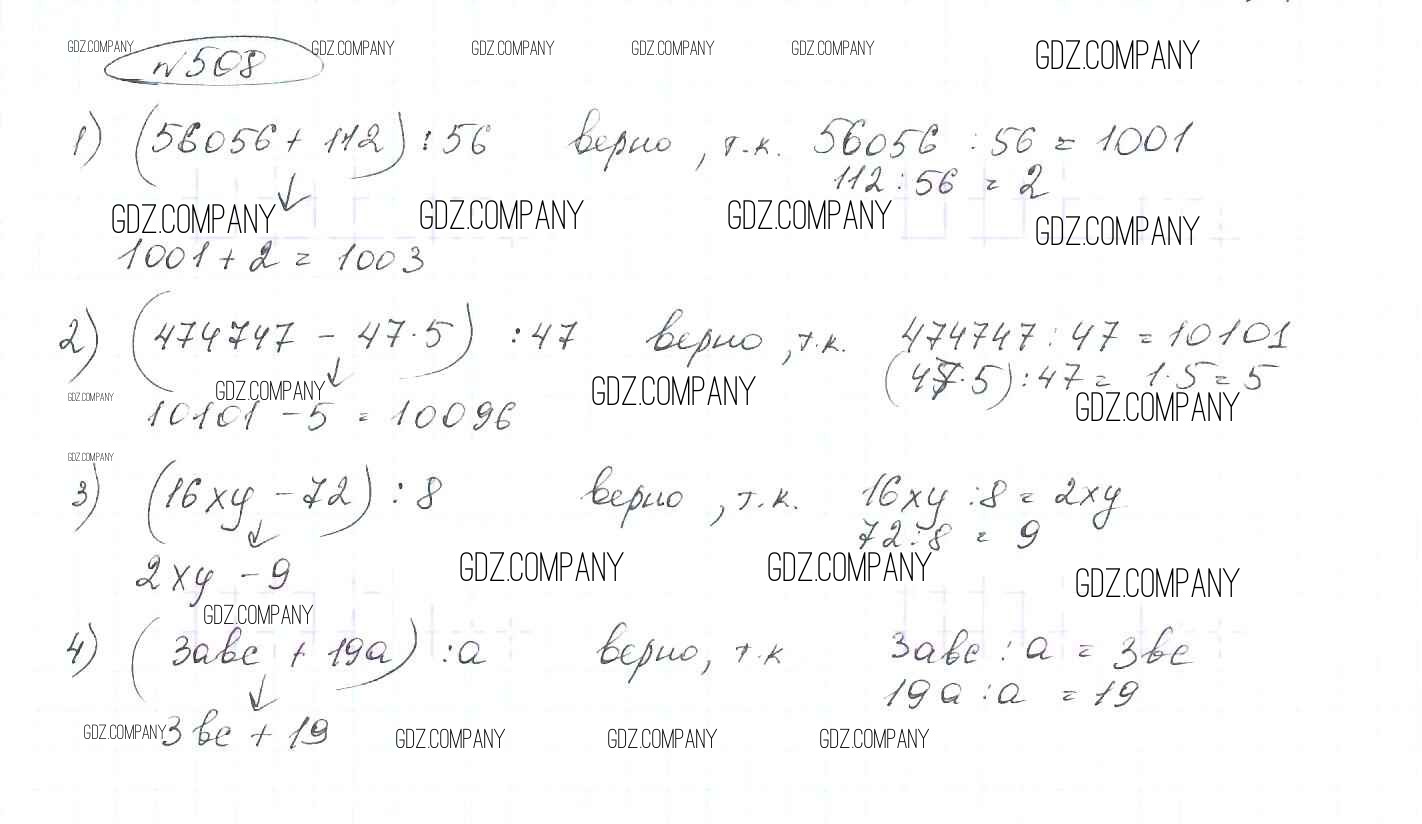 GDZ.COMPANY GDZ.COMPANY GDZ.COMPANY GDZ.COMPANY GDZ.COMPANY GDZ.COMPANY
№508
1) (56056 + 112) : 56 верно, т.к. 56056 : 56 = 1001
112 : 56 = 2
GDZ.COMPANY GDZ.COMPANY GDZ.COMPANY GDZ.COMPANY
1001 + 2 = 1003
2) (474747 - 47·5) : 47 верно, т.к. 474747 : 47 = 10101
(47·5) : 47 = 1·5 = 5
GDZ.COMPANY GDZ.COMPANY GDZ.COMPANY GDZ.COMPANY
10101 - 5 = 10096
GDZ.COMPANY
3) (16xy - 72) : 8 верно, т.к. 16xy : 8 = 2xy
72 : 8 = 9
2xy - 9 GDZ.COMPANY GDZ.COMPANY GDZ.COMPANY
GDZ.COMPANY
4) (3авс + 19а) : а верно, т.к 3авс : а = 3вс
19а : а = 19
GDZ.COMPANY 3вс + 19 GDZ.COMPANY GDZ.COMPANY GDZ.COMPANY